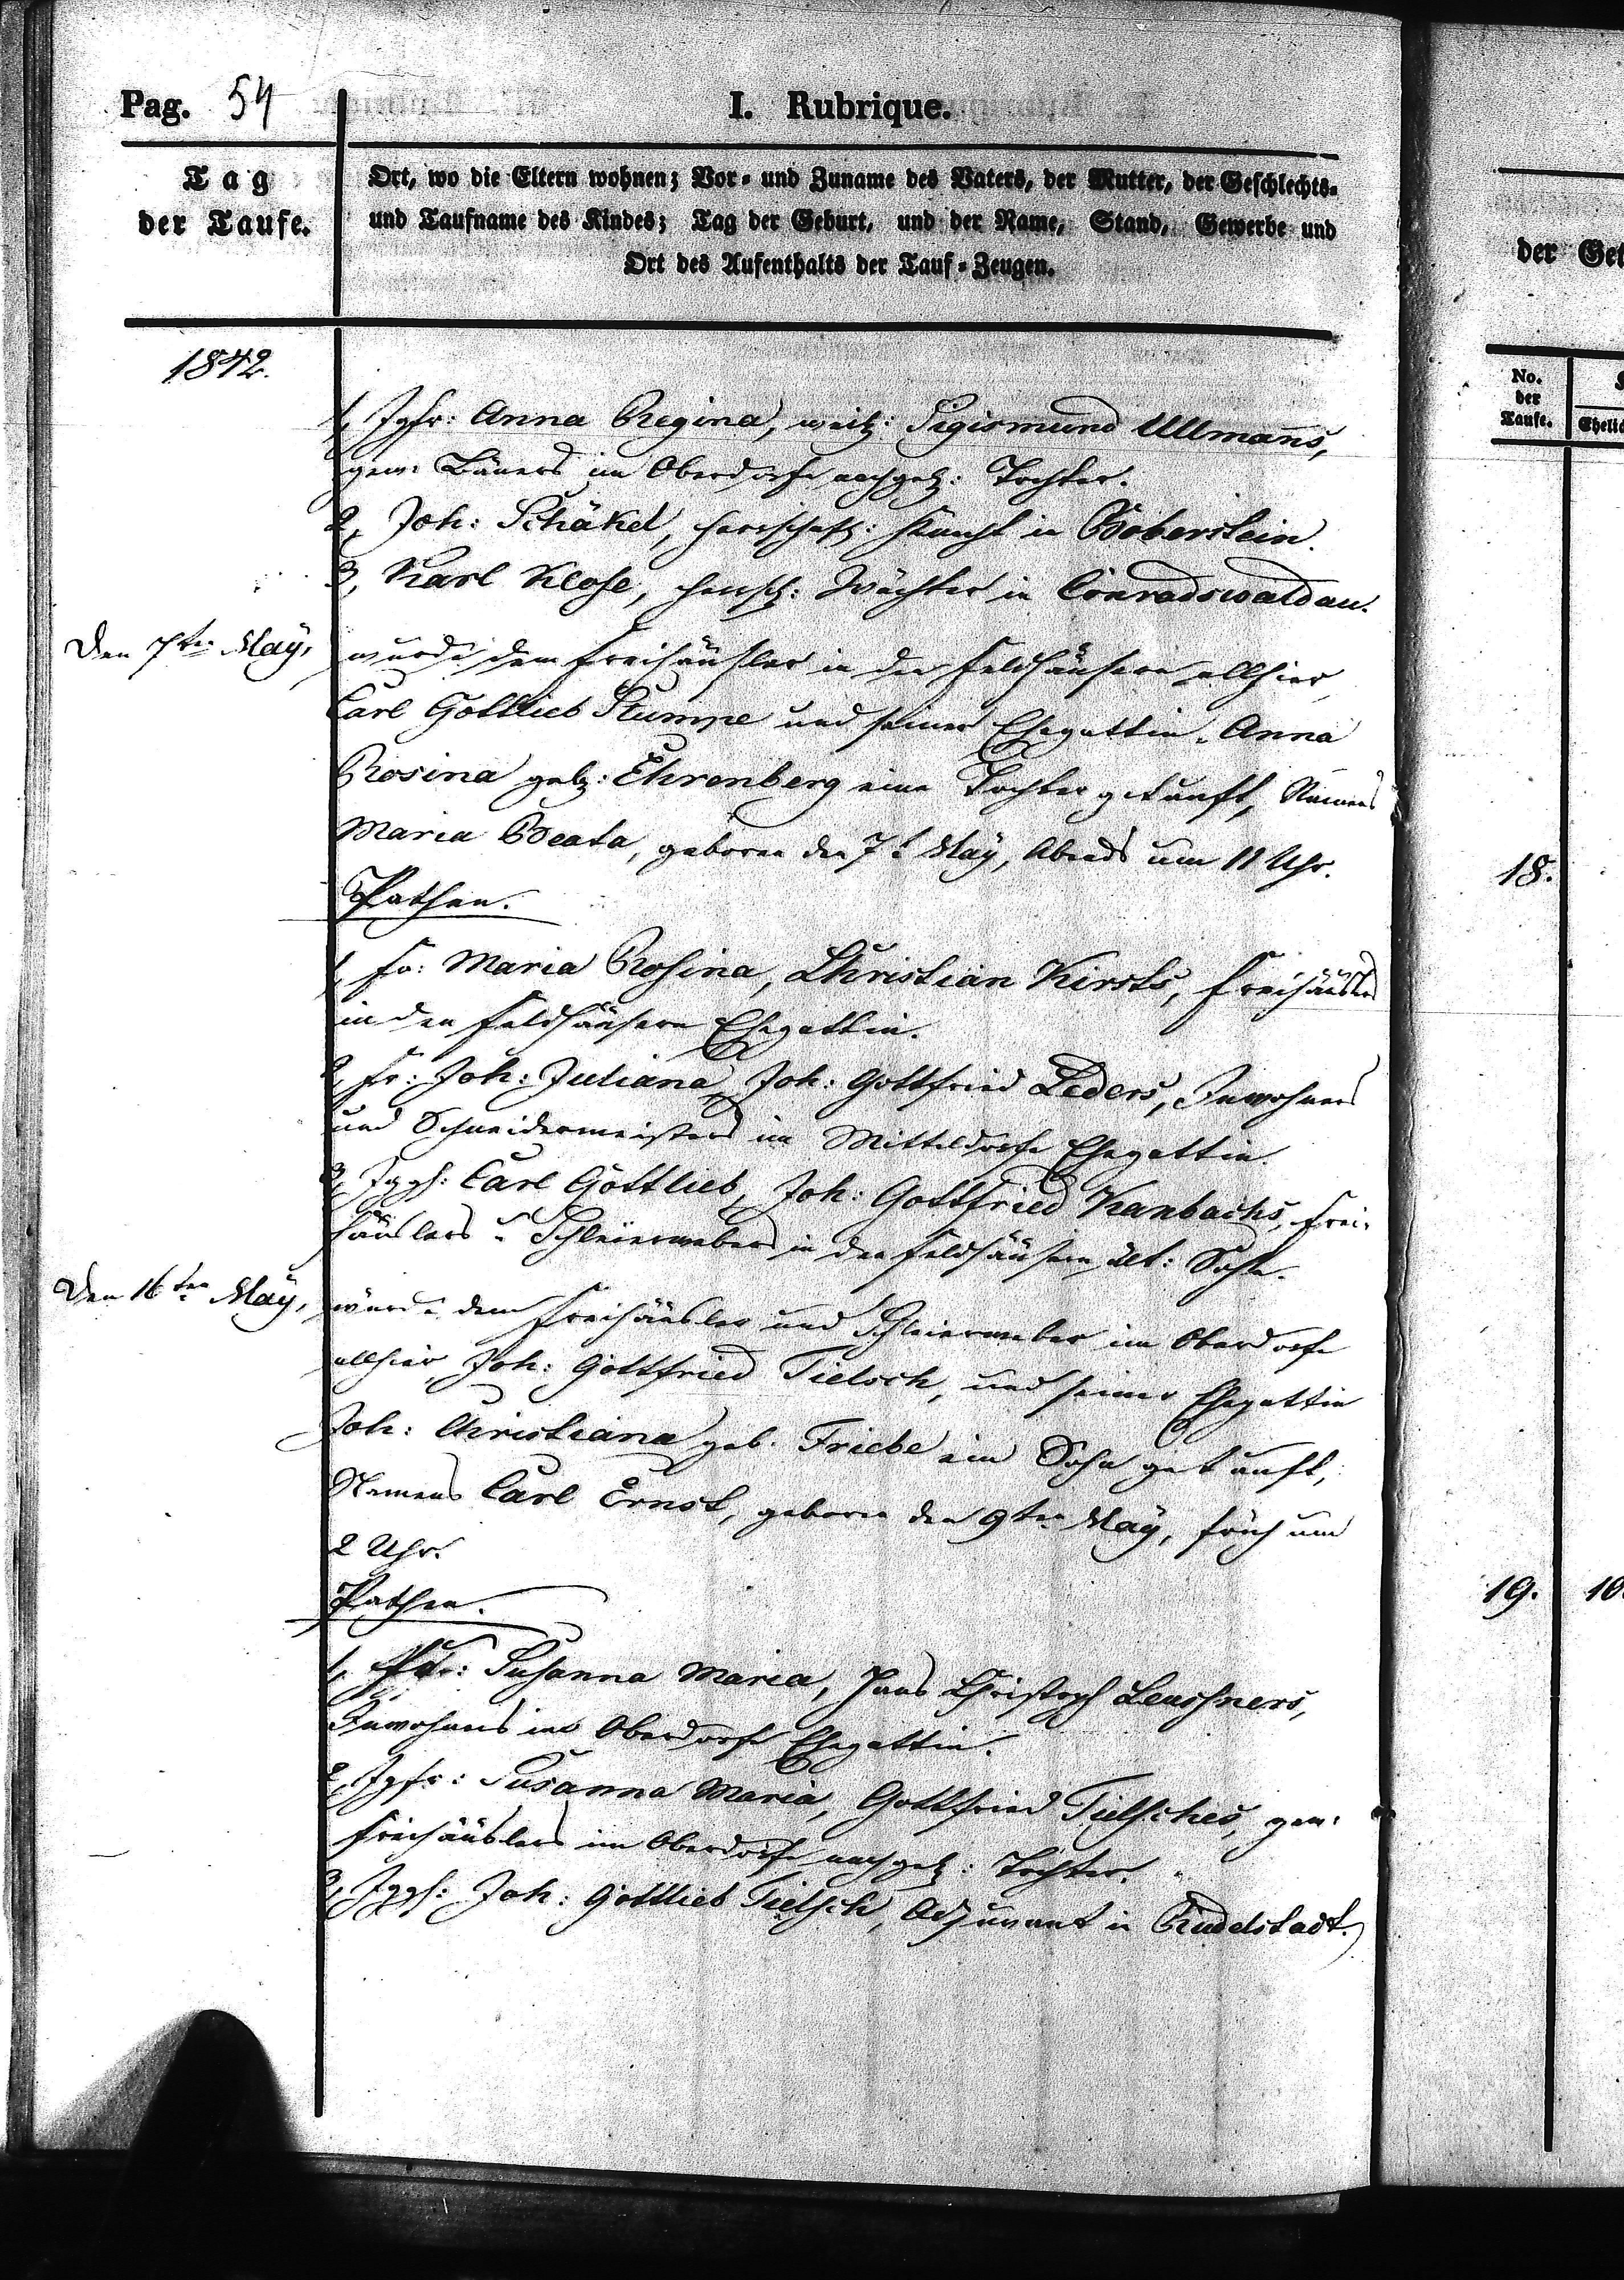 Pag. 54
I. Rubrique.
Tag
der Taufe.
Ort, wo die Eltern wohnen; Vor- und Zuname des Vaters, der Mutter, der Geschlechts-
und Taufname des Kindes; Tag der Geburt, und der Name, Stand, Gewerbe und
Ort des Aufenthalts der Tauf-Zeugen.
1842.
1, Jgfr: Anna Regina, weil: Sigismund Ullmanns,
gew: Bauers im Oberdorfe nachgel: Tochter.
2, Joh: Schäkel, herrschaftl: Knecht in Boberstein.
3, Karl Klose, herrsch: Wächter in Conradswaldau.
Den 7ten May,
wurde dem Freihäusler in den Feldhäusern allhier,
Carl Gottlieb Stumpe und seiner Ehegattin, Anna
Rosina geb: Ehrenberg eine Tochter getauft, Namens
Maria Beata, geboren den 7t May, Abends um 11 Uhr.
Pathen.
1, Fr: Maria Rosina, Christian Kirsts, Freihäuslers
in den Feldhäusern Ehegattin.
2, Fr: Joh: Juliana, Joh: Gottfried Leders, Inwohners
und Schneidermeisters im Mitteldorfe Ehegattin.
3, Jggs: Carl Gottlieb, Joh: Gottfried Kanbachs, Frei-
häuslers u. Schleierwebers in den Feldhäusern ält: Sohn.
Den 16ten May,
wurde dem Freihäusler und Schleierweber im Oberdorfe
allhier, Joh: Gottfried Tielsch, und seiner Ehegattin
Joh: Christiana geb. Friebe ein Sohn getauft,
Namens Carl Ernst, geboren den 9ten May, früh um
2 Uhr.
Pathen.
1, Fr: Susanna Maria, Hans Christoph Leushners,
Inwohners im Oberdorfe Ehegattin.
2, Jgfr: Susanna Maria, Gottfried Tielsches, gew:
Freihäuslers im Oberdorfe nachgel: Tochter.
3, Jggs: Joh: Gottlieb Tielsch, Adjuvant in Rudelstadt.
der Ge
No.
der
Taufe.
18.
19.